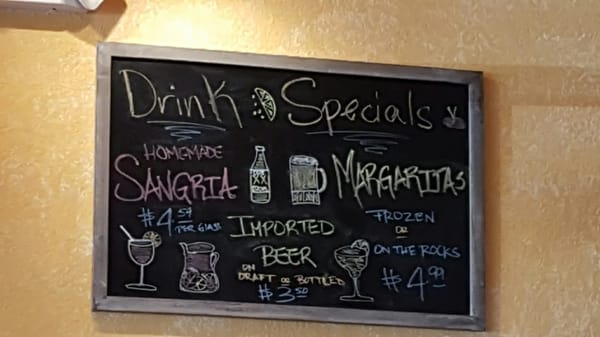 Drink Specials
HOMEMADE
SANGRIA
$4.59
PER GLASS
IMPORTED
BEER
ON
DRAFT OR BOTTLED
$3.50
MARGARITAS
FROZEN
OR
ON THE ROCKS
$4.99